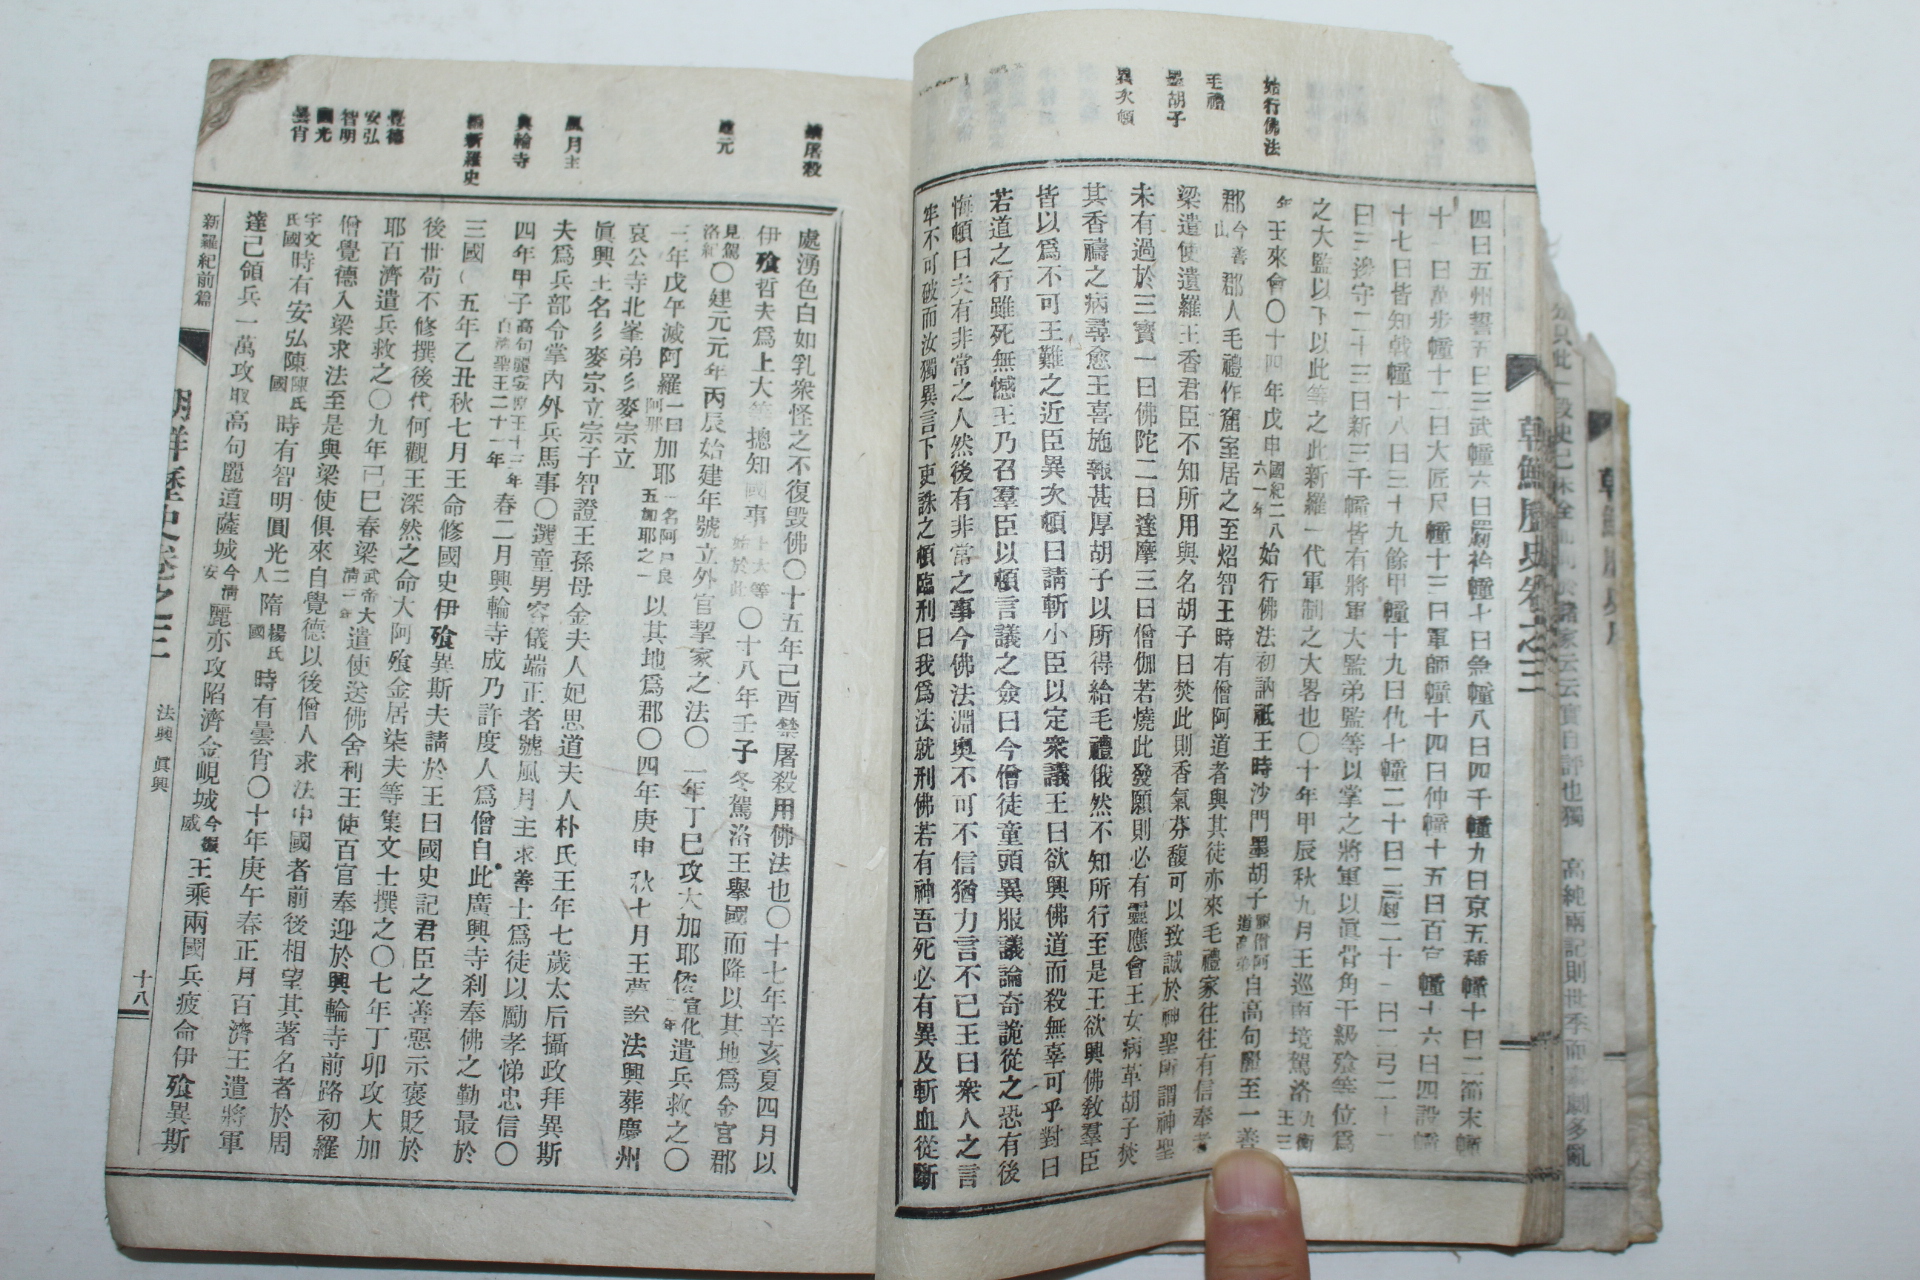 始行佛法
毛禮
墨胡子
異次頓
四曰五州誓五曰三武幢六曰罽衿幢七曰急幢八曰四千幢九曰京五種幢十曰二節末幢
十一曰萬步幢十二曰大匠尺幢十三曰軍師幢十四曰仲幢十五曰百官幢十六曰四設幢
十七曰皆知戟幢十八曰三十九餘甲幢十九曰仇七幢二十曰二罽二十一曰二弓二十二
曰三滲守二十三曰新三千幢皆有將軍大監弟監等以掌之將軍以眞骨角干級飱等位爲
之大監以下以此等之此新羅一代軍制之大畧也〇十年甲辰秋九月王巡南境駕洛仇衡王三
年王來會〇十四年戊申國紀二八六一年始行佛法初訥祗王時沙門墨胡子自高句麗至一善
郡今善山郡人毛禮作窟室居之至炤智王時有僧阿道者與其徒亦來毛禮家往往有信奉者
梁遣使遺羅王香君臣不知所用與名胡子曰焚此則香氣芬馥可以致誠於神聖所謂神聖
未有過於三寶一曰佛陀二曰達摩三曰僧伽若燒此發願則必有靈應會王女病革胡子焚
其香禱之病尋愈王喜施報甚厚胡子以所得給毛禮俄然不知所行至是王欲興佛敎羣臣
皆以爲不可王難之近臣異次頓曰請斬小臣以定衆議王曰欲興佛道而殺無辜可乎對曰
若道之行雖死無憾王乃召羣臣以頓言議之僉曰今僧徒童頭異服議論奇詭從之恐有後
悔頓曰夫有非常之人然後有非常之事今佛法淵奧不可不信猶力言不已王曰衆人之言
牢不可破而汝獨異言下吏誅之頓臨刑曰我爲法就刑佛若有神吾死必有異及斬血從斷
朝鮮歷史卷之三
禁屠殺
建元
風月主
興輪寺
新羅史
覺德
安弘
智明
圓光
曇育
處湧色白如乳衆怪之不復毀佛〇十五年己酉禁屠殺用佛法也〇十七年辛亥夏四月以
伊飱哲夫爲上大等摠知國事上大等始於此〇十八年壬子冬駕洛王舉國而降以其地爲金官郡
見駕洛紀〇建元元年丙辰始建年號立外官挈家之法〇二年丁巳攻大加耶倭宣化二年遣兵救之〇
三年戊午滅阿羅一曰阿那加耶一名阿尸良五加耶之一以其地爲郡〇四年庚申秋七月王薨諡法興葬慶州
哀公寺北峯弟彡麥宗立
眞興王名彡麥宗立宗子智證王孫母金夫人妃思道夫人朴氏王年七歲太后攝政拜異斯
夫爲兵部令掌內外兵馬事〇選童男容儀端正者號風月主求善士爲徒以勵孝悌忠信〇
四年甲子高句麗安原王十三年百濟聖王二十一年春二月興輪寺成乃許度人爲僧自此廣興寺刹奉佛之勤最於
三國〇五年乙丑秋七月王命修國史伊飱異斯夫請於王曰國史記君臣之善惡示褒貶於
後世苟不修撰後代何觀王深然之命大阿飱金居柒夫等集文士撰之〇七年丁卯攻大加
耶百濟遣兵救之〇九年己巳春梁武帝大淸三年遣使送佛舍利王使百官奉迎於興輪寺前路初羅
僧覺德入梁求法至是與梁使俱來自覺德以後僧人求法中國者前後相望其著名者於周
宇文氏國時有安弘陳陳氏國時有智明圓光二人隋楊氏國時有曇育〇十年庚午春正月百濟王遣將軍
達己領兵一萬攻取高句麗道薩城今淸安麗亦攻陷濟金峴城今鎭威王乘兩國兵疲命伊飱異斯
新羅紀前篇
朝鮮歷史卷之三
法興 眞興
十八